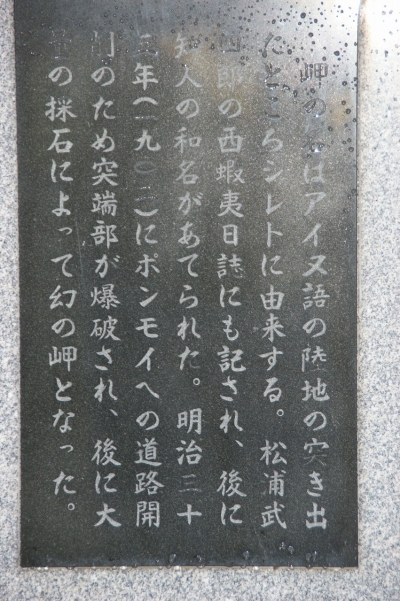 岬の名はアイヌ語の陸地の突き出
たところシレトに由来する。松浦武
四郎の西蝦夷日誌にも記され、後に
知人の和名があてられた。明治三十
五年(一九〇二)にポンモイへの道路開
削のため突端部が爆破され、後に大
量の採石によって幻の岬となった。